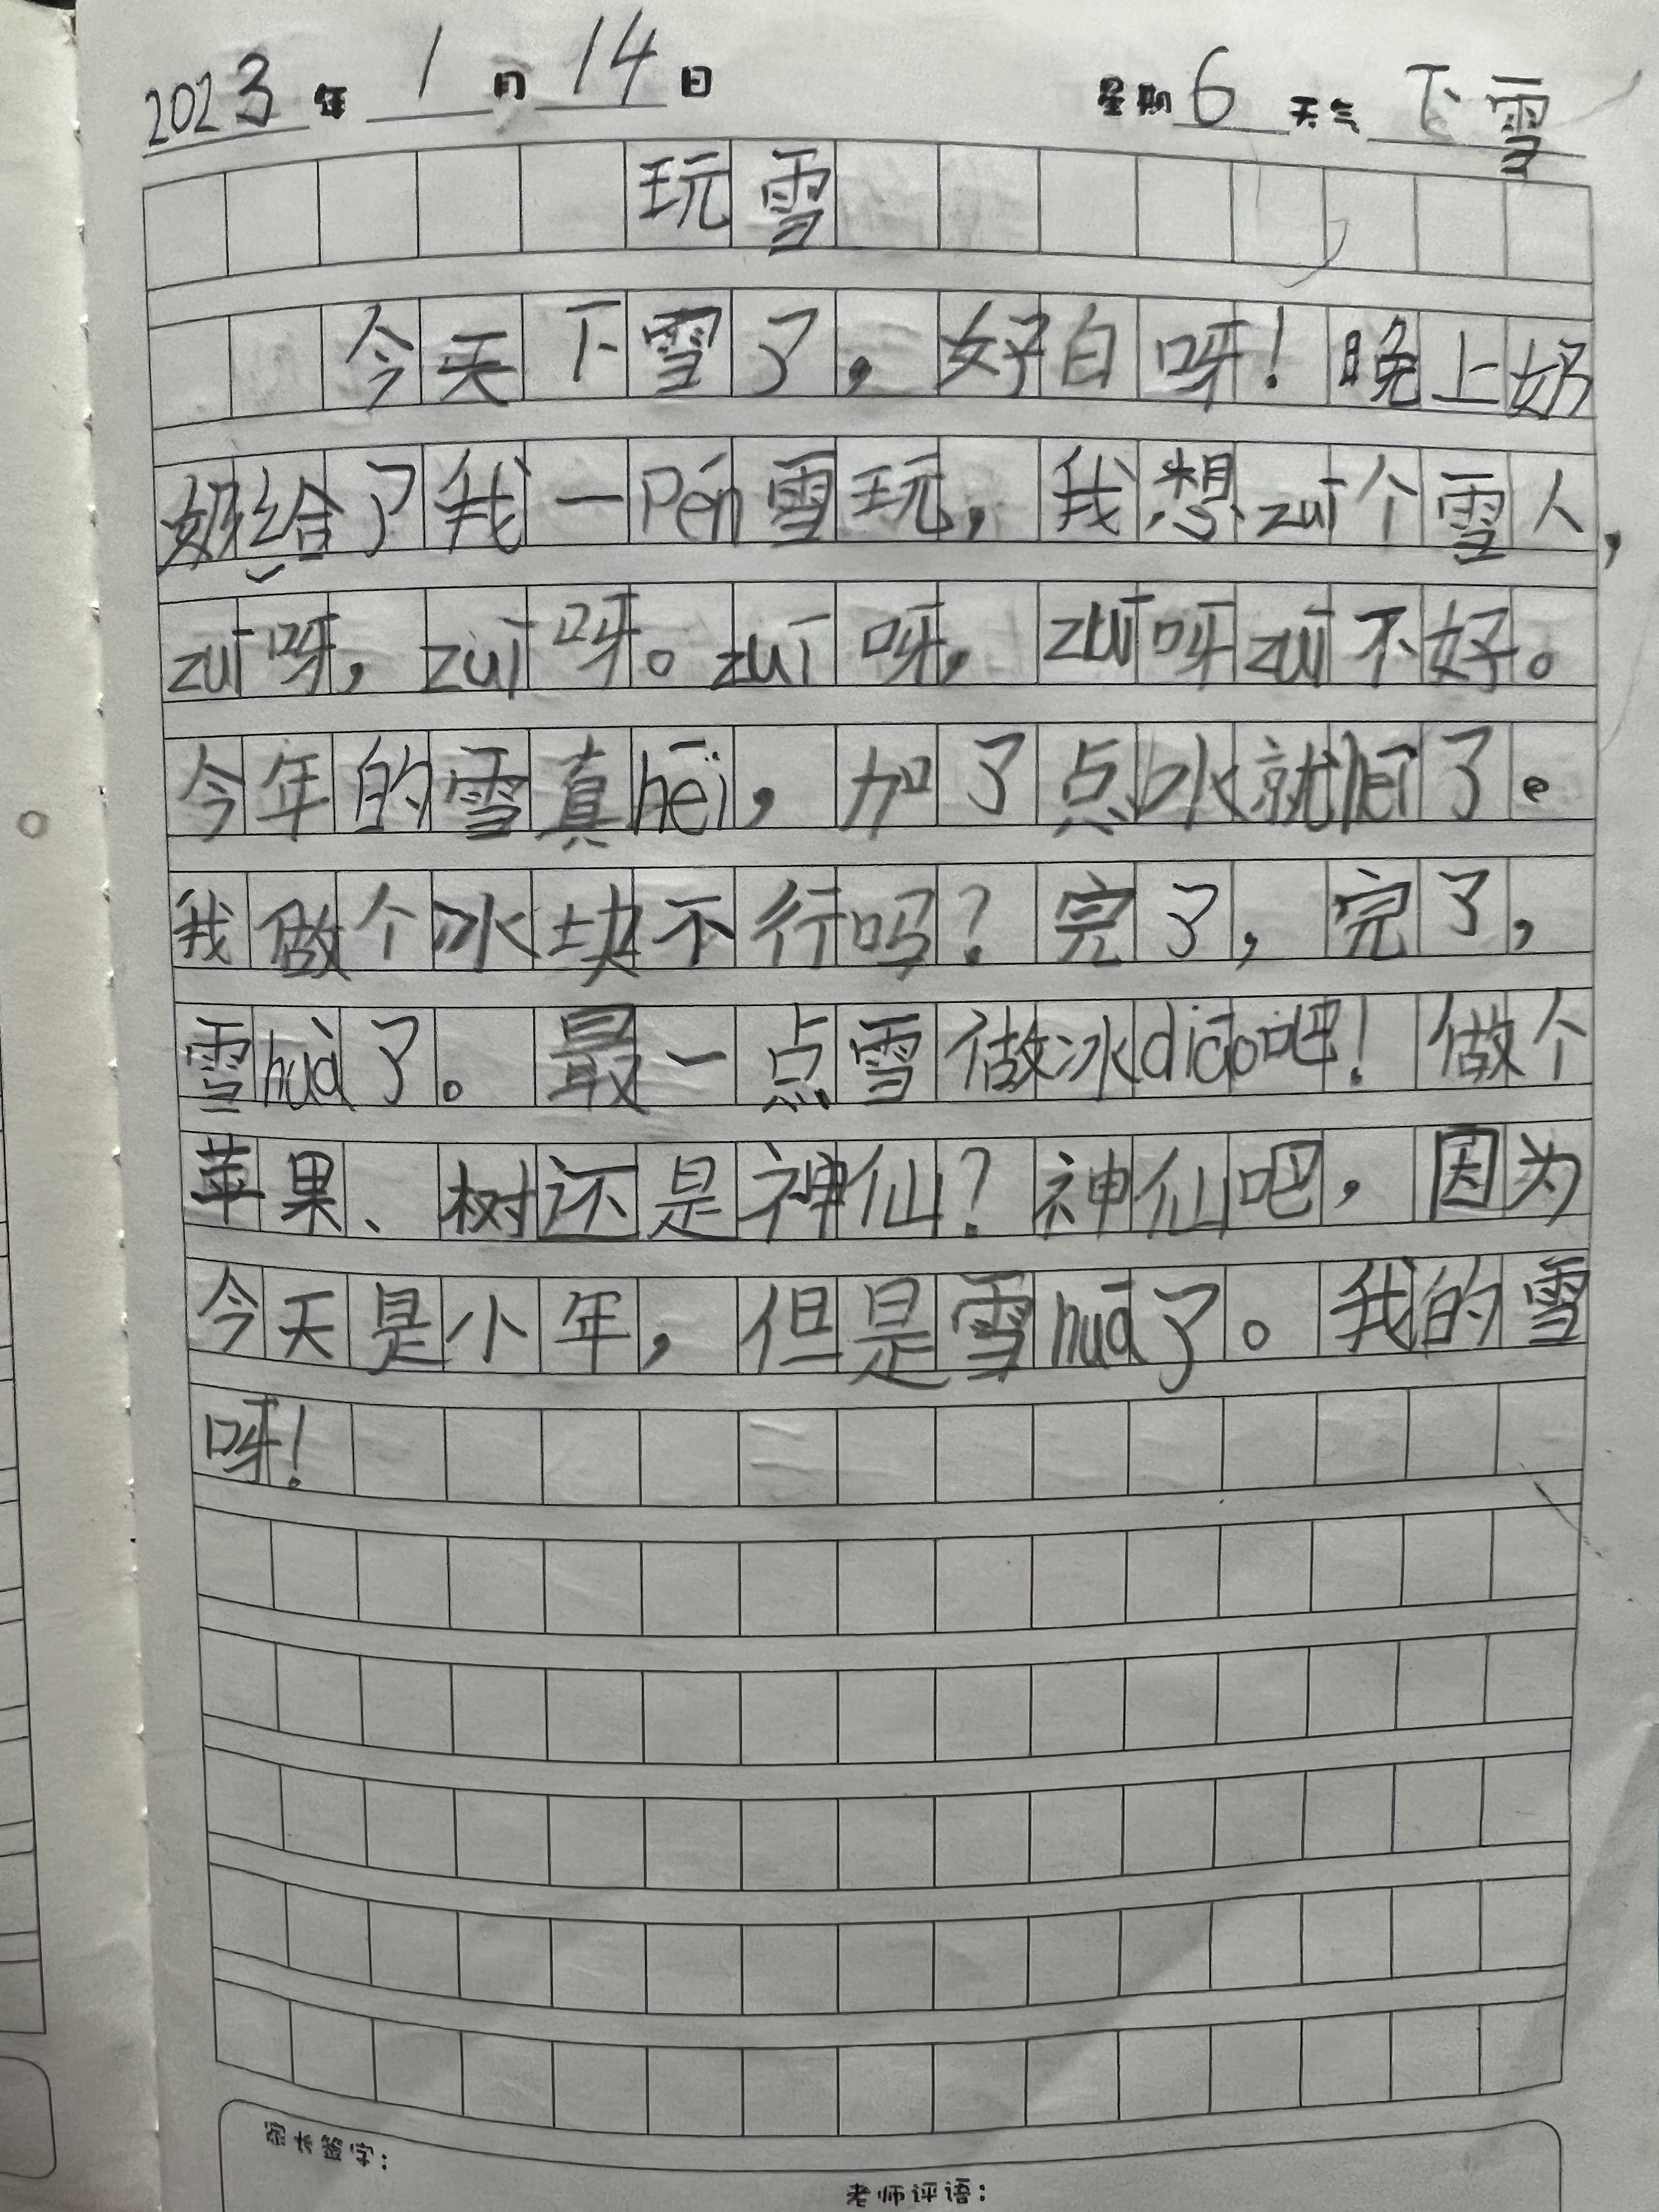 2023年1月14日 星期6天气下雪
玩雪
今天下雪了，好白呀！晚上奶
奶给了我一Pén雪玩，我想zuī个雪人，
zuī呀，zuī呀。zuī呀，zuī呀zuī不好。
今年的雪真hēi，加了点水就hēi了。
我做个冰块不行吗？完了，完了，
雪huà了。最一点雪做冰diāo吧！做个
苹果、树还是神仙？神仙吧，因为
今天是小年，但是雪huà了。我的雪
呀！
家长签字：
老师评语：